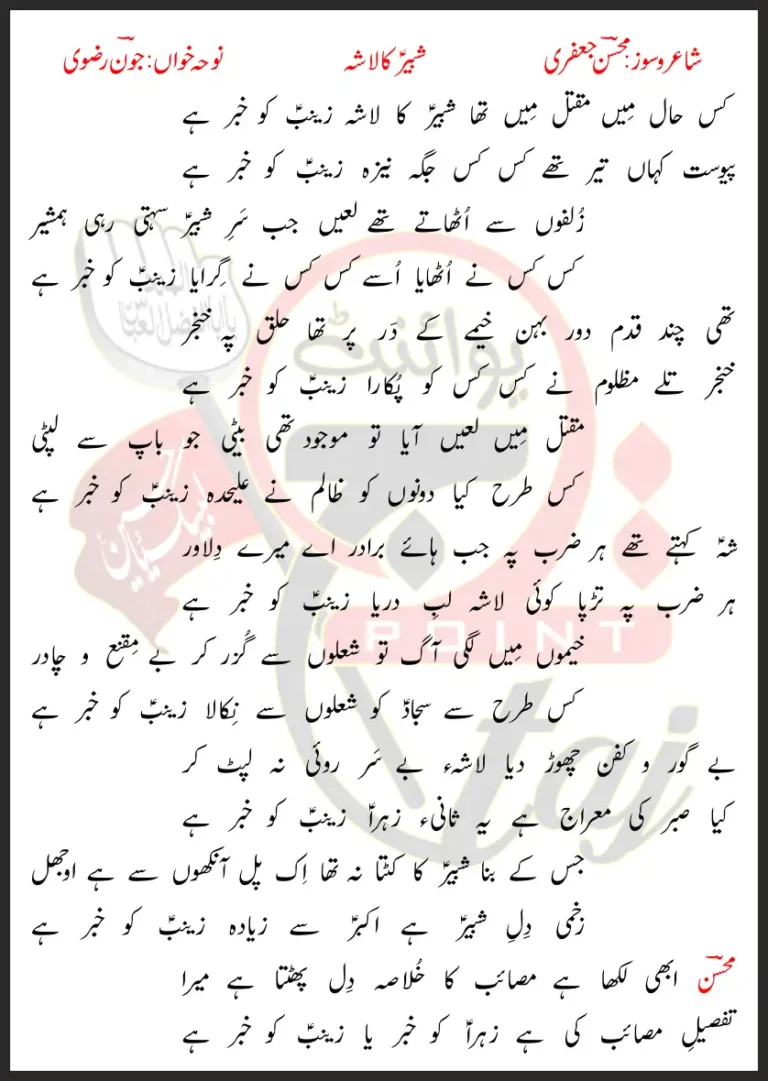 شاعر و سوز: محسنؔ جعفری شبیرؑ کا لاشہ نوحہ خواں: جونؔ رضوی
کس حال میں مقتل میں تھا شبیرؑ کا لاشہ زینبؑ کو خبر ہے
پیوست کہاں تیر تھے کس کس جگہ نیزہ زینبؑ کو خبر ہے
زُلفوں سے اُٹھاتے تھے لعیں جب سَرِ شبیرؑ سہتی رہی ہمشیر
کس کس نے اُٹھایا اُسے کس کس نے گِرایا زینبؑ کو خبر ہے
تھی چند قدم دور بہن خیمے کے دَر پر تھا حلق پہ خنجر
خنجر تلے مظلوم نے کس کس کو پُکارا زینبؑ کو خبر ہے
مقتل میں لعیں آیا تو موجود تھی بیٹی جو باپ سے لپٹی
کس طرح کیا دونوں کو ظالم نے علیحدہ زینبؑ کو خبر ہے
شہؑ کہتے تھے ہر ضرب پہ جب ہائے برادر اے میرے دِلاور
ہر ضرب پہ تڑپا کوئی لاشہ لبِ دریا زینبؑ کو خبر ہے
خیموں مِیں لگی آگ تو شعلوں سے گُزر کر بے مِقنع و چادر
کس طرح سے سجادؑ کو شعلوں سے نِکالا زینبؑ کو خبر ہے
بے گور و کفن چھوڑ دیا لاشۂ بے سَر روئی نہ لپٹ کر
کیا صبر کی معراج ہے یہ ثانیٔ زہراؑ زینبؑ کو خبر ہے
جس کے بنا شبیرؑ کا کٹتا نہ تھا اِک پل آنکھوں سے ہے اوجھل
زخمی دِلِ شبیرؑ ہے اکبرؑ سے زیادہ زینبؑ کو خبر ہے
محسنؔ ابھی لکھا ہے مصائب کا خُلاصہ دِل پھٹتا ہے میرا
تفصیلِ مصائب کی ہے زہراؑ کو خبر یا زینبؑ کو خبر ہے
پوائنٹ
POINT
taj